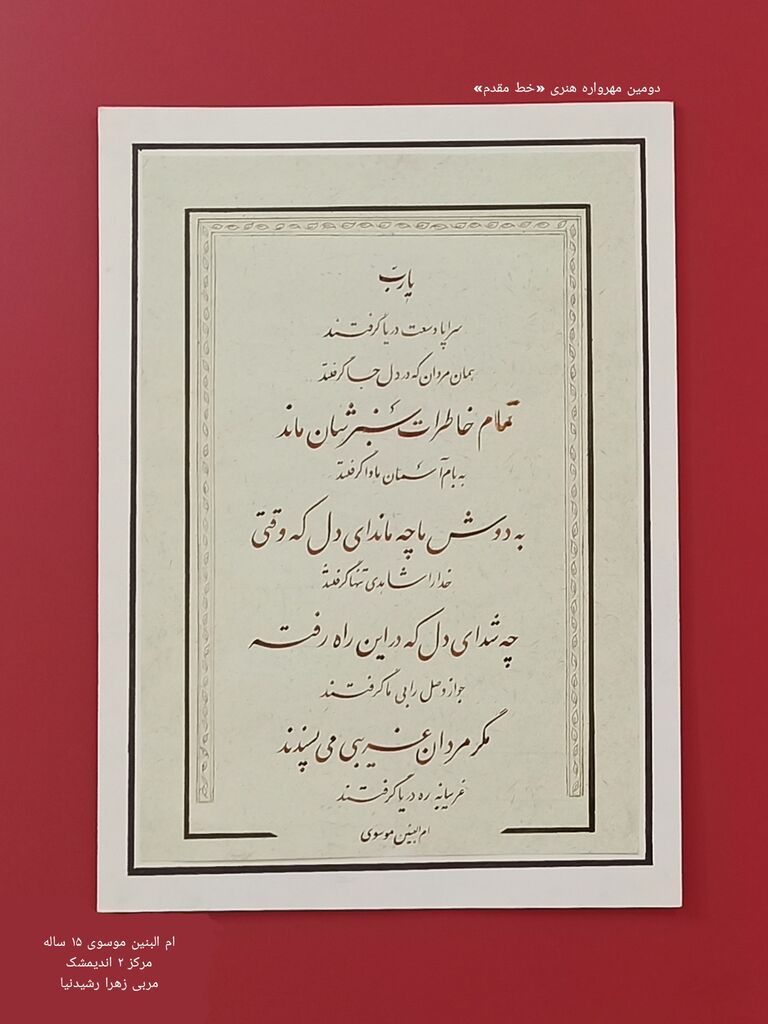 دومین مهرواره هنری «خط مقدم»
یارب
سراپا وسعت دریا گرفتند
همان مردان که در دل جا گرفتند
تمام خاطرات سبزشان ماند
به بام آسمان ماوا گرفتند
به دوش ما چه ماند ای دل که وقتی
خدا را شاهدی تنها گرفتند
چه شد ای دل که در این راه رفته
جواز وصل را بی ما گرفتند
مگر مردان غریبی می پسندند
غریبانه ره دریا گرفتند
ام البنین موسوی
ام البنین موسوی ۱۵ ساله
مرکز ۲ اندیمشک
مربی زهرا رشیدنیا